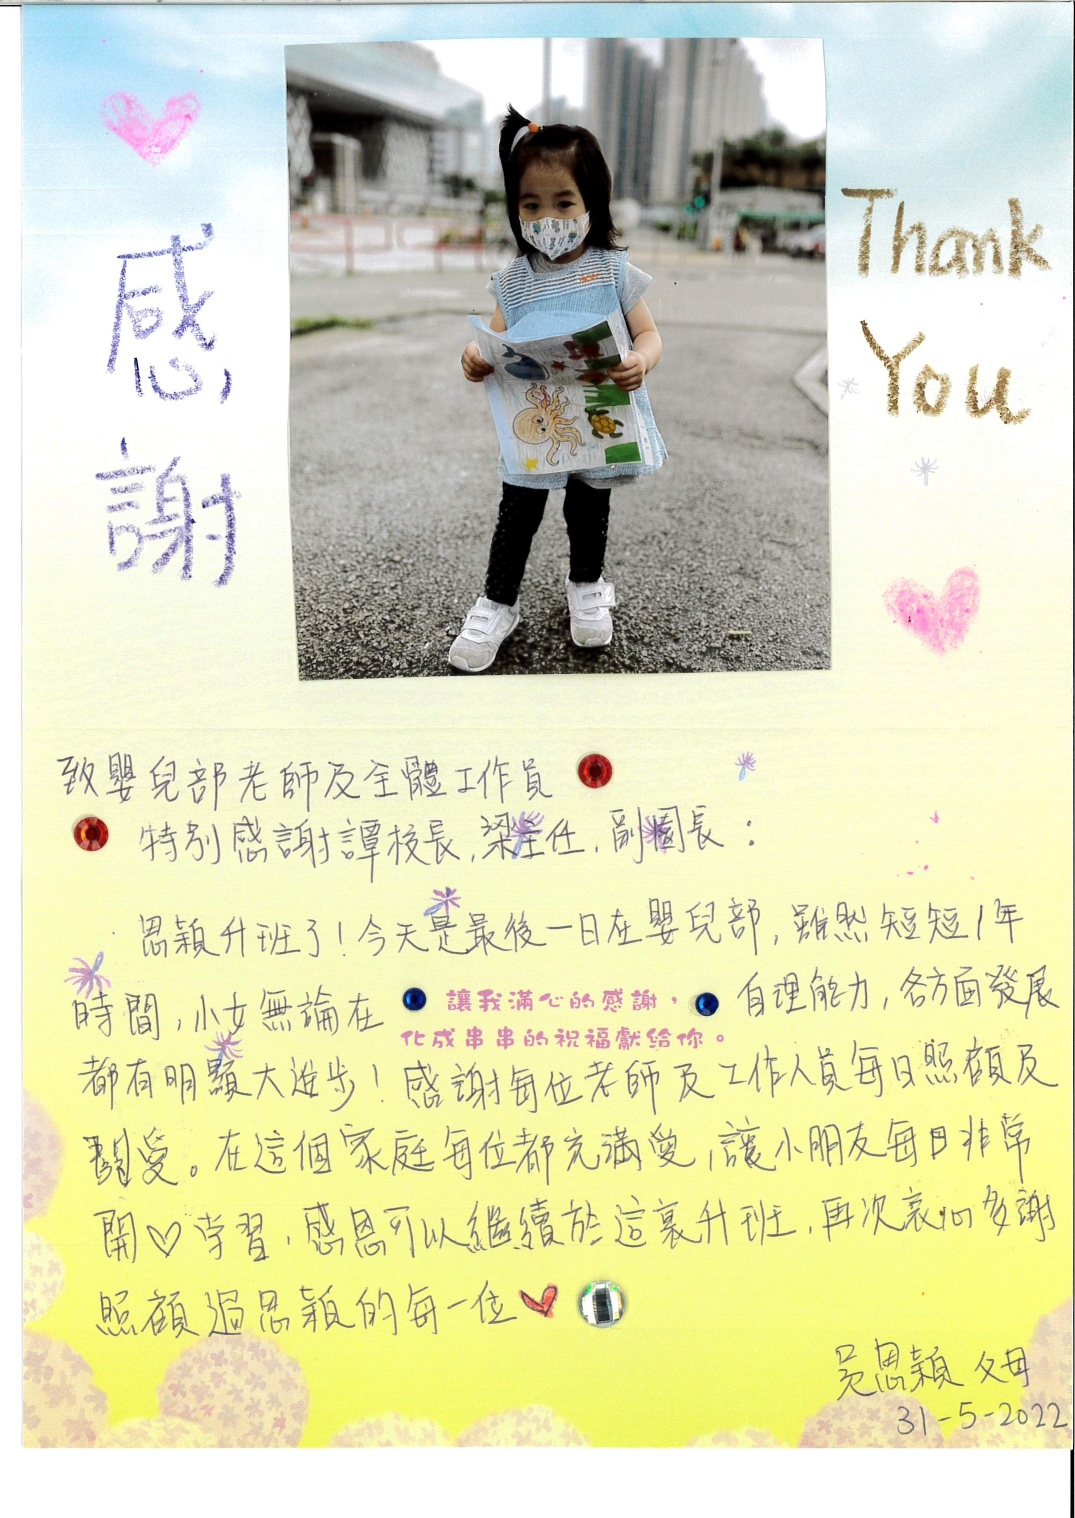 感謝
Thank
You
致嬰兒部老師及全體工作員
特別感謝譚校長,梁主任,副園長:
思穎升班了!今天是最後一日在嬰兒部,雖然短短1年
時間,小女無論在
讓我滿心的感謝,
化成串串的祝福獻給你。
自理能力,各方面發展
都有明顯大進步!感謝每位老師及工作人員每日照顧及
關愛。在這個家庭每位都充滿愛,讓小朋友每日非常
開♡學習,感恩可以繼續於這裏升班,再次衷心多謝
照顧過思穎的每一位♥
吳思穎 父母
31-5-2022